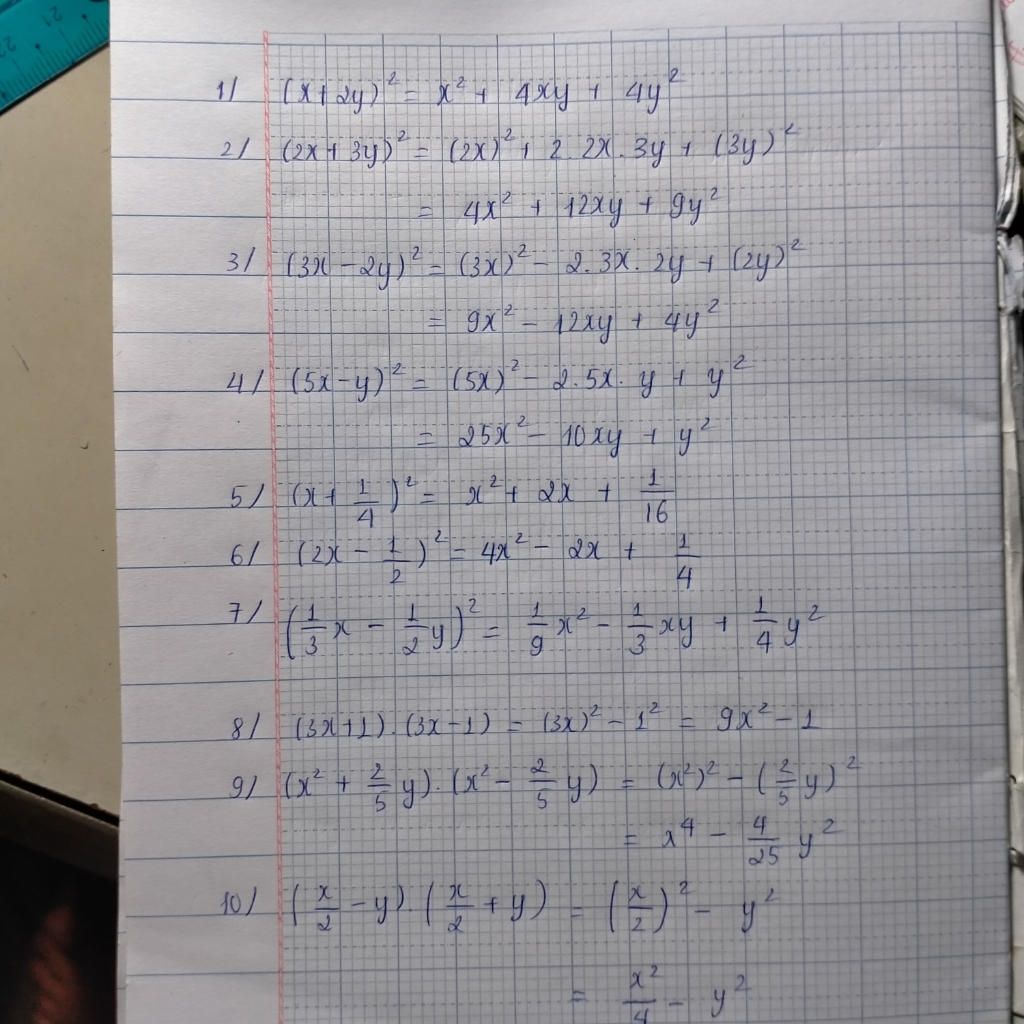 1/ (x+2y)² = x² + 4xy + 4y²
2/ (2x+3y)² = (2x)² + 2.2x.3y + (3y)²
= 4x² + 12xy + 9y²
3/ (3x-2y)² = (3x)² - 2.3x.2y + (2y)²
= 9x² - 12xy + 4y²
4/ (5x-y)² = (5x)² - 2.5x.y + y²
= 25x² - 10xy + y²
5/ (x+1/4)² = x² + 2x + 1/16
6/ (2x - 1/2)² = 4x² - 2x + 1/4
7/ (1/3x - 1/2y)² = 1/9x² - 1/3xy + 1/4y²
8/ (3x+1).(3x-1) = (3x)² - 1² = 9x² - 1
9/ (x² + 2/5y).(x² - 2/5y) = (x²)² - (2/5y)²
= x⁴ - 4/25 y²
10/ (x/2 - y).(x/2 + y) = (x/2)² - y²
= x²/4 - y²